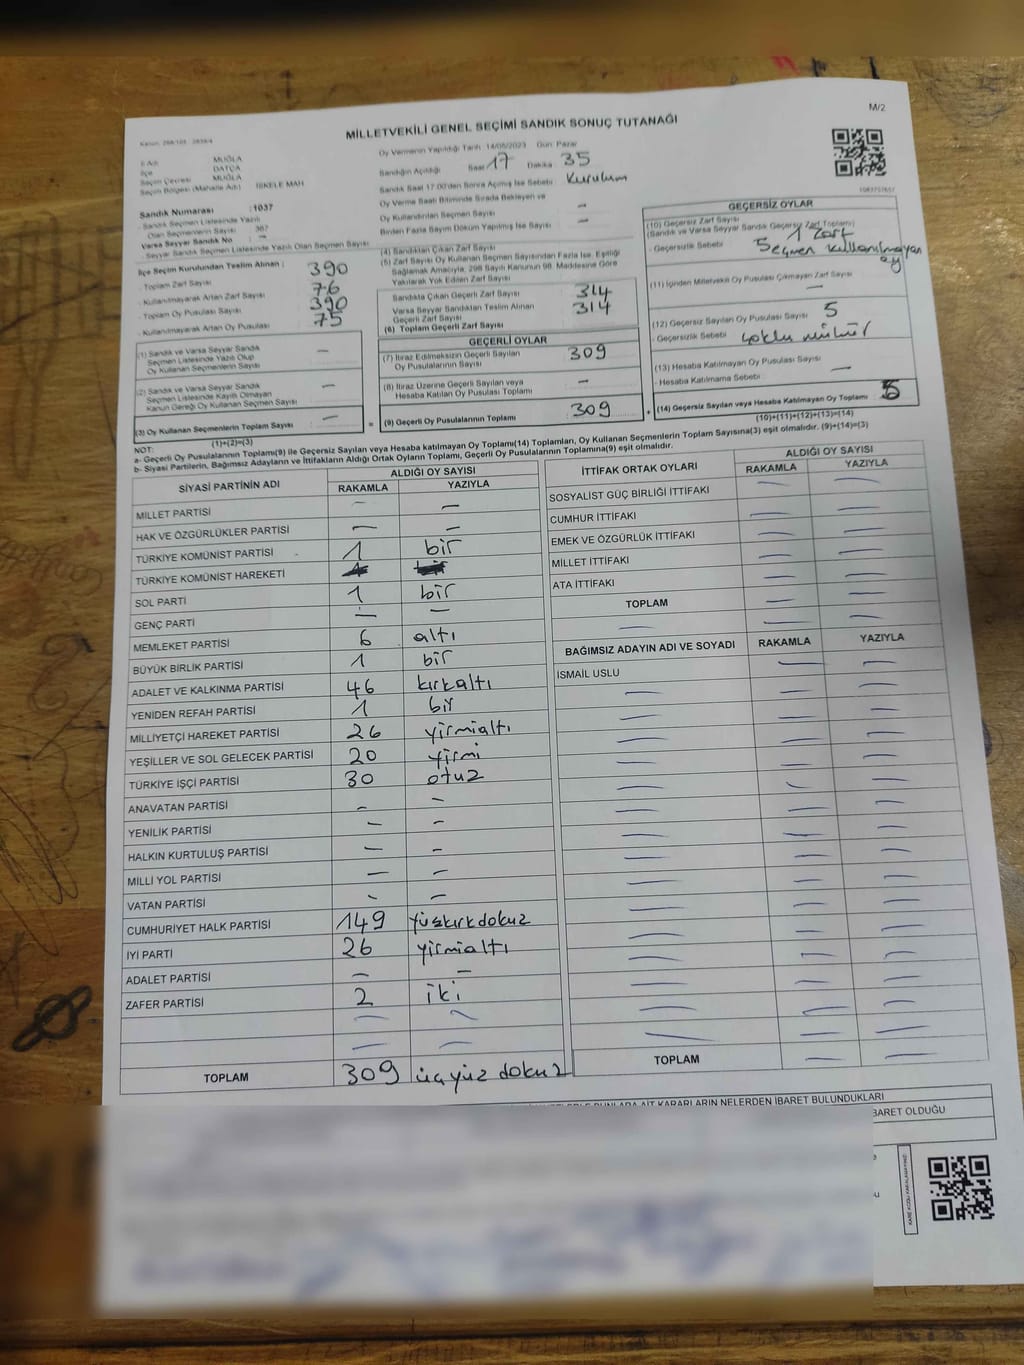 M/2
MİLLETVEKİLİ GENEL SEÇİMİ SANDIK SONUÇ TUTANAĞI
İl Adı MUĞLA
İlçe DATÇA
Seçim Çevresi MUĞLA
Seçim Bölgesi (Mahalle Adı) İSKELE MAH.
Sandık Numarası :1037
- Sandık Seçmen Listesinde Yazılı
Olan Seçmenlerin Sayısı 367
Varsa Seyyar Sandık No —
- Seyyar Sandık Seçmen Listesinde Yazılı Olan Seçmen Sayısı
İlçe Seçim Kurulundan Teslim Alınan :
- Toplam Zarf Sayısı 390
- Kullanılmayarak Artan Zarf Sayısı 76
- Toplam Oy Pusulası Sayısı 390
- Kullanılmayarak Artan Oy Pusulası 75
(1) Sandık ve Varsa Seyyar Sandık
Seçmen Listesinde Yazılı Olup
Oy Kullanan Seçmenlerin Sayısı —
(2) Sandık ve Varsa Seyyar Sandık
Seçmen Listesinde Kayıtlı Olmayan
Kanun Gereği Oy Kullanan Seçmen Sayısı —
(3) Oy Kullanan Seçmenlerin Toplam Sayısı —
(1)+(2)=(3)
Oy Vermenin Yapıldığı Tarih 14/05/2023 Gün Pazar
Sandığın Açıldığı Saat 17 Dakika 35
Sandık Saat 17.00'den Sonra Açılmış İse Sebebi Kurulum
Oy Verme Saati Bitiminde Sırada Bekleyen ve
Oy Kullandırılan Seçmen Sayısı —
Birden Fazla Sayım Döküm Yapılmış İse Sayısı —
(4) Sandıktan Çıkan Zarf Sayısı
(5) Zarf Sayısı Oy Kullanan Seçmen Sayısından Fazla İse, Eşitliği
Sağlamak Amacıyla, 298 Sayılı Kanunun 98. Maddesine Göre
Yakılarak Yok Edilen Zarf Sayısı
Sandıkta Çıkan Geçerli Zarf Sayısı 314
Varsa Seyyar Sandıktan Teslim Alınan
Geçerli Zarf Sayısı 314
(6) Toplam Geçerli Zarf Sayısı
GEÇERLİ OYLAR
(7) İtiraz Edilmeksizin Geçerli Sayılan
Oy Pusulalarının Sayısı 309
(8) İtiraz Üzerine Geçerli Sayılan veya
Hesaba Katılan Oy Pusulası Toplamı —
= (9) Geçerli Oy Pusulalarının Toplamı 309
GEÇERSİZ OYLAR
(10) Geçersiz Zarf Sayısı
(Sandık ve Varsa Seyyar Sandık Geçersiz Zarf Toplamı) 1 Zarf
- Geçersizlik Sebebi Seçmen kullanılmayan oy
(11) İçinden Milletvekili Oy Pusulası Çıkmayan Zarf Sayısı —
(12) Geçersiz Sayılan Oy Pusulası Sayısı 5
- Geçersizlik Sebebi çoklu mühür
(13) Hesaba Katılmayan Oy Pusulası Sayısı
- Hesaba Katılmama Sebebi —
+ (14) Geçersiz Sayılan veya Hesaba Katılmayan Oy Toplamı 5
(10)+(11)+(12)+(13)=(14)
NOT:
a- Geçerli Oy Pusulalarının Toplamı(9) ile Geçersiz Sayılan veya Hesaba katılmayan Oy Toplamı(14) Toplamları, Oy Kullanan Seçmenlerin Toplam Sayısına(3) eşit olmalıdır. (9)+(14)=(3)
b- Siyasi Partilerin, Bağımsız Adayların ve İttifakların Aldığı Ortak Oyların Toplamı, Geçerli Oy Pusulalarının Toplamına(9) eşit olmalıdır.
SİYASİ PARTİNİN ADI ALDIĞI OY SAYISI
RAKAMLA YAZIYLA
MİLLET PARTİSİ — —
HAK VE ÖZGÜRLÜKLER PARTİSİ — —
TÜRKİYE KOMÜNİST PARTİSİ 1 bir
TÜRKİYE KOMÜNİST HAREKETİ
SOL PARTİ 1 bir
GENÇ PARTİ — —
MEMLEKET PARTİSİ 6 altı
BÜYÜK BİRLİK PARTİSİ 1 bir
ADALET VE KALKINMA PARTİSİ 46 kırkaltı
YENİDEN REFAH PARTİSİ 1 bir
MİLLİYETÇİ HAREKET PARTİSİ 26 yirmialtı
YEŞİLLER VE SOL GELECEK PARTİSİ 20 yirmi
TÜRKİYE İŞÇİ PARTİSİ 30 otuz
ANAVATAN PARTİSİ — —
YENİLİK PARTİSİ — —
HALKIN KURTULUŞ PARTİSİ — —
MİLLİ YOL PARTİSİ — —
VATAN PARTİSİ — —
CUMHURİYET HALK PARTİSİ 149 yüzkırkdokuz
İYİ PARTİ 26 yirmialtı
ADALET PARTİSİ — —
ZAFER PARTİSİ 2 iki
TOPLAM 309 üçyüz dokuz
İTTİFAK ORTAK OYLARI ALDIĞI OY SAYISI
RAKAMLA YAZIYLA
SOSYALİST GÜÇ BİRLİĞİ İTTİFAKI — —
CUMHUR İTTİFAKI — —
EMEK VE ÖZGÜRLÜK İTTİFAKI — —
MİLLET İTTİFAKI — —
ATA İTTİFAKI — —
TOPLAM — —
BAĞIMSIZ ADAYIN ADI VE SOYADI RAKAMLA YAZIYLA
İSMAİL USLU — —
TOPLAM — —
AİT KARARLARIN NELERDEN İBARET BULUNDUKLARI
İBARET OLDUĞU